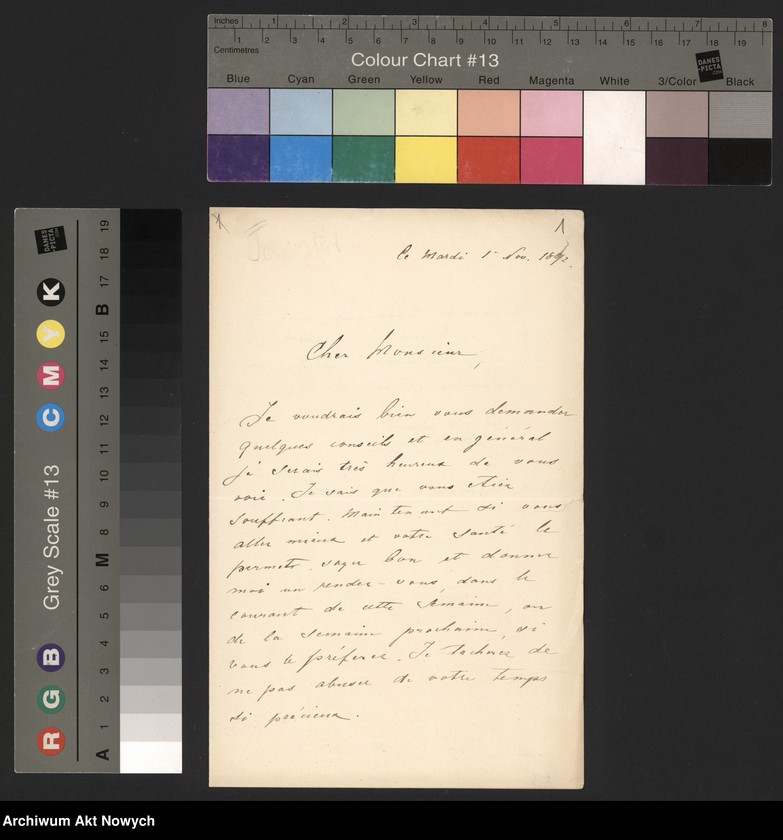 inches 1 2 3 4 5 6 7 8
Centimetres 1 2 3 4 5 6 7 8 9 10 11 12 13 14 15 16 17 18 19
Colour Chart #13
DANES-PICTA.COM
Blue Cyan Green Yellow Red Magenta White 3/Color Black
Grey Scale #13
R G B C M Y K
A 1 2 3 4 5 6 M 8 9 10 11 12 13 14 15 B 17 18 19
DANES-PICTA.COM
1
Le Mardi 1r Nov. 1892.
Cher Monsieur,
Je voudrais bien vous demander
quelques conseils et en général
je serais très heureux de vous
voir. Je sais que vous étiez
souffrant. Maintenant si vous
allez mieux et votre santé le
permet, soyez bon et donnez
moi un rendez-vous dans le
courant de cette semaine, ou
de la semaine prochaine, si
vous le préferez. Je tacherez de
ne pas abuser de votre temps
si précieux.
Archiwum Akt Nowych